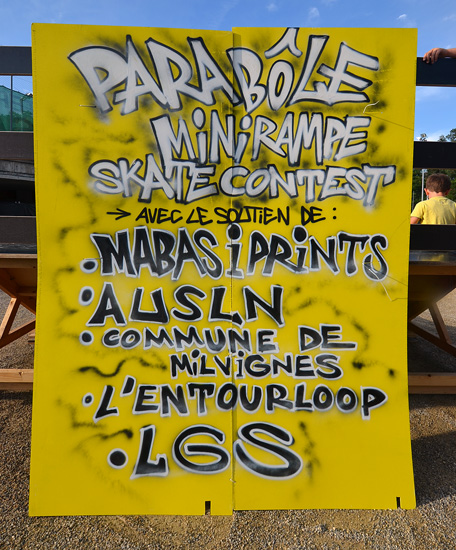 PARABÔLE
MINIRAMPE
SKATE CONTEST
→ AVEC LE SOUTIEN DE :
• MABASIPRINTS
• AUSLN
• COMMUNE DE
MILVIGNES
• L'ENTOURLOOP
• LGS